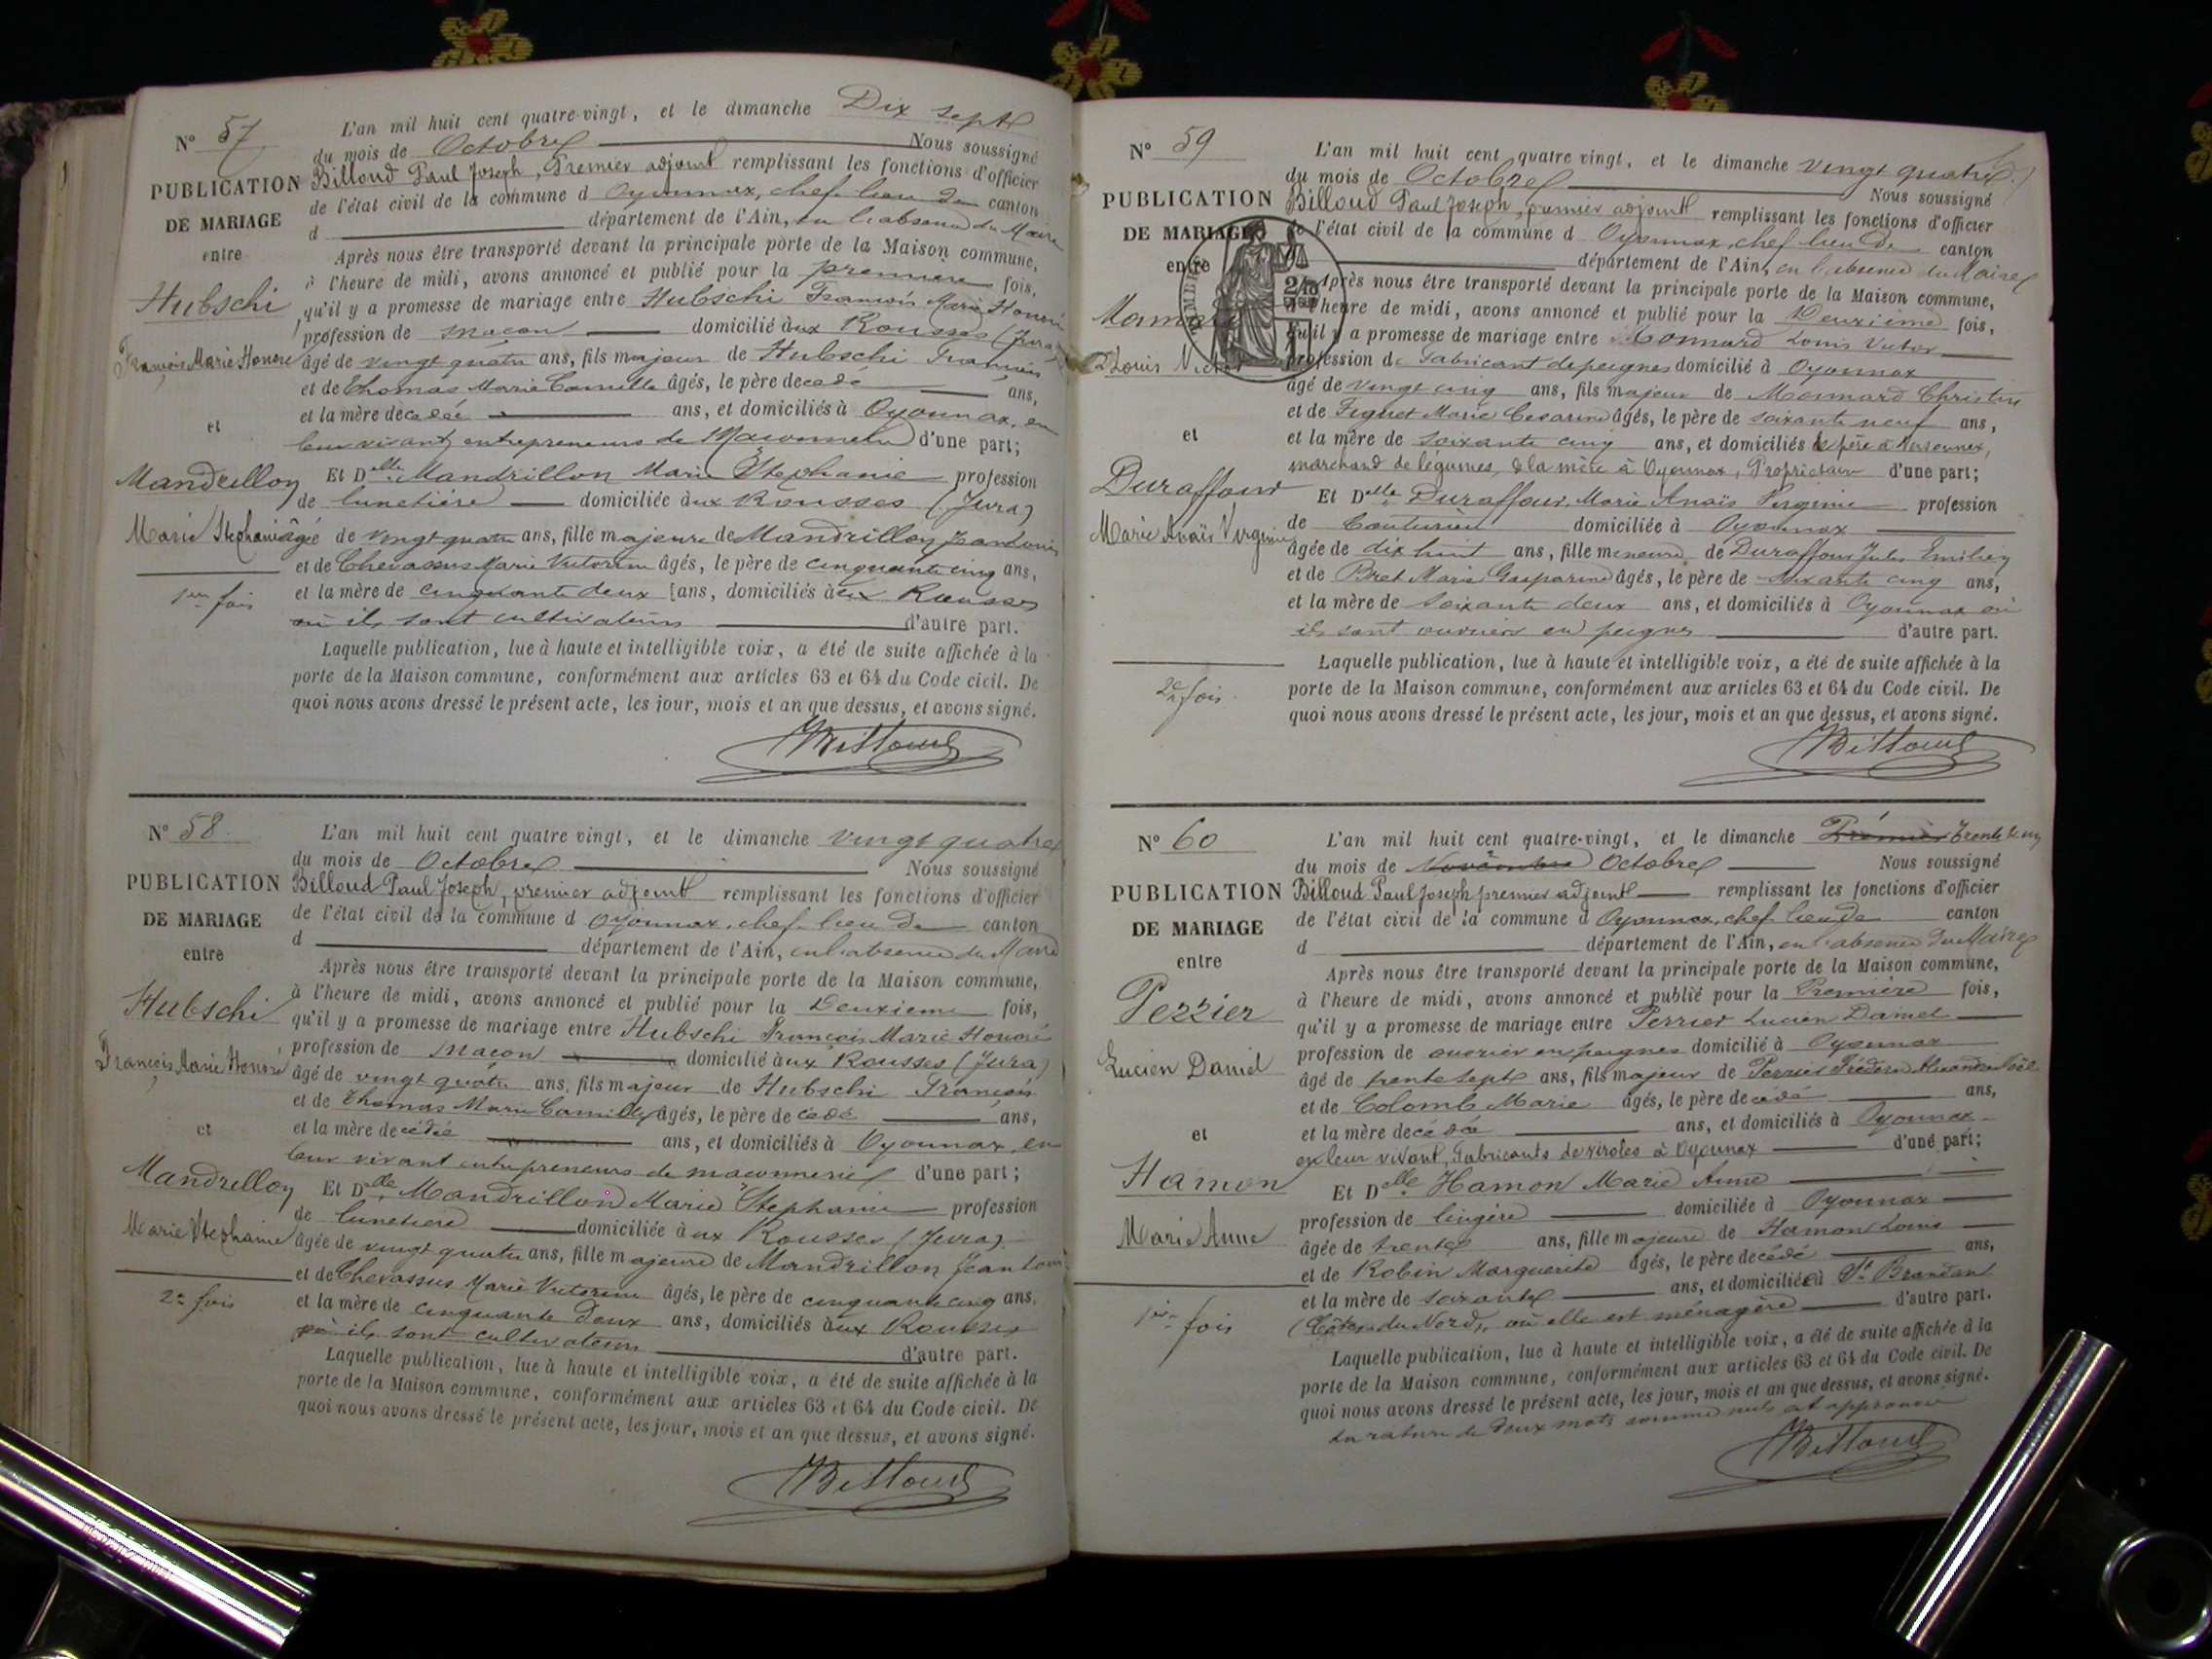 N° 57
PUBLICATION
DE MARIAGE
entre
Hubschi
François Marie Honoré
et
Mandrillon
Marie Stephanie
1ère fois
L'an mil huit cent quatre-vingt, et le dimanche Dix sept
du mois de Octobre Nous soussigné
Billoud Paul Joseph, Premier adjoint remplissant les fonctions d'officier
de l'état civil de la commune d Oyonnax, chef lieu de canton
d département de l'Ain, en l'absence du Maire
Après nous être transporté devant la principale porte de la Maison commune,
à l'heure de midi, avons annoncé et publié pour la première fois,
qu'il y a promesse de mariage entre Hubschi François Marie Honoré
profession de maçon domicilié aux Rousses (Jura)
âgé de vingt quatre ans, fils majeur de Hubschi François
et de Thomas Marie Camille âgés, le père decedé ans,
et la mère decedée ans, et domiciliés à Oyonnax, en
leur vivant entrepreneurs de Maçonnerie d'une part;
Et Delle Mandrillon Marie Stephanie profession
de lunetière domiciliée aux Rousses (Jura)
âgée de vingt quatre ans, fille majeure de Mandrillon Jean Louis
et de Chevassus Marie Victorine âgés, le père de cinquante cinq ans,
et la mère de cinquante deux ans, domiciliés aux Rousses
où ils sont cultivateurs d'autre part.
Laquelle publication, lue à haute et intelligible voix, a été de suite affichée à la
porte de la Maison commune, conformément aux articles 63 et 64 du Code civil. De
quoi nous avons dressé le présent acte, les jour, mois et an que dessus, et avons signé.
Billoud
N° 58
PUBLICATION
DE MARIAGE
entre
Hubschi
François Marie Honoré
et
Mandrillon
Marie Stephanie
2e fois
L'an mil huit cent quatre vingt, et le dimanche vingt quatre
du mois de Octobre Nous soussigné
Billoud Paul Joseph, premier adjoint remplissant les fonctions d'officier
de l'état civil de la commune d Oyonnax, chef lieu de canton
d département de l'Ain, en l'absence du Maire
Après nous être transporté devant la principale porte de la Maison commune,
à l'heure de midi, avons annoncé et publié pour la Deuxième fois,
qu'il y a promesse de mariage entre Hubschi François Marie Honoré
profession de maçon domicilié aux Rousses (Jura)
âgé de vingt quatre ans, fils majeur de Hubschi François
et de Thomas Marie Camille âgés, le père decedé ans,
et la mère decédée ans, et domiciliés à Oyonnax, en
leur vivant entrepreneurs de maçonnerie d'une part;
Et Delle Mandrillon Marie Stephanie profession
de lunetière domiciliée aux Rousses (Jura)
âgée de vingt quatre ans, fille majeure de Mandrillon Jean Louis
et de Chevassus Marie Victorine âgés, le père de cinquante cinq ans,
et la mère de cinquante deux ans, domiciliés aux Rousses
où ils sont cultivateurs d'autre part.
Laquelle publication, lue à haute et intelligible voix, a été de suite affichée à la
porte de la Maison commune, conformément aux articles 63 et 64 du Code civil. De
quoi nous avons dressé le présent acte, les jour, mois et an que dessus, et avons signé.
Billoud
N° 59
PUBLICATION
DE MARIAGE
entre
Louis Victor
et
Duraffour
Marie Anaïs Virginie
2e fois.
L'an mil huit cent quatre vingt, et le dimanche vingt quatre
du mois de Octobre Nous soussigné
Billoud Paul Joseph, premier adjoint remplissant les fonctions d'officier
de l'état civil de la commune d Oyonnax, chef lieu de canton
département de l'Ain, en l'absence du Maire
Après nous être transporté devant la principale porte de la Maison commune,
à l'heure de midi, avons annoncé et publié pour la Deuxième fois,
qu'il y a promesse de mariage entre Monnard Louis Victor
profession de Fabricant de peignes domicilié à Oyonnax
âgé de vingt cinq ans, fils majeur de Monnard Christin
et de Piquet Marie Cesarine âgés, le père de soixante neuf ans,
et la mère de soixante cinq ans, et domiciliés le père à
marchand de légumes, & la mère à Oyonnax, Propriétaire d'une part;
Et Delle Duraffour, Marie Anaïs Virginie profession
de Couturière domiciliée à Oyonnax
âgée de dix huit ans, fille mineure de Duraffour Jules Emilien
et de Bret Marie Gasparine âgés, le père de soixante cinq ans,
et la mère de soixante deux ans, et domiciliés à Oyonnax où
ils sont ouvriers en peignes d'autre part.
Laquelle publication, lue à haute et intelligible voix, a été de suite affichée à la
porte de la Maison commune, conformément aux articles 63 et 64 du Code civil. De
quoi nous avons dressé le présent acte, les jour, mois et an que dessus, et avons signé.
Billoud
N° 60
PUBLICATION
DE MARIAGE
entre
Perrier
Lucien Daniel
et
Hamon
Marie Anne
1ère fois
L'an mil huit cent quatre-vingt, et le dimanche Premier trente & un
du mois de Novembre Octobre Nous soussigné
Billoud Paul Joseph premier adjoint remplissant les fonctions d'officier
de l'état civil de la commune d Oyonnax, chef lieu de canton
d département de l'Ain, en l'absence du Maire
Après nous être transporté devant la principale porte de la Maison commune,
à l'heure de midi, avons annoncé et publié pour la Première fois,
qu'il y a promesse de mariage entre Perrier Lucien Daniel
profession de ouvrier en peignes domicilié à Oyonnax
âgé de trente sept ans, fils majeur de Perrier Fréderic
et de Colomb Marie âgés, le père decédé ans,
et la mère decédée ans, et domiciliés à Oyonnax
en leur vivant, Fabricants de viroles à Oyonnax d'une part;
Et Delle Hamon Marie Anne
profession de lingère domiciliée à Oyonnax
âgée de trente ans, fille majeure de Hamon Louis
et de Robin Marguerite âgés, le père decédé ans,
et la mère de soixante ans, et domiciliée à St Brandan
(Côtes du Nord), où elle est ménagère d'autre part.
Laquelle publication, lue à haute et intelligible voix, a été de suite affichée à la
porte de la Maison commune, conformément aux articles 63 et 64 du Code civil. De
quoi nous avons dressé le présent acte, les jour, mois et an que dessus, et avons signé.
La rature de deux mots comme nuls est approuvée
Billoud